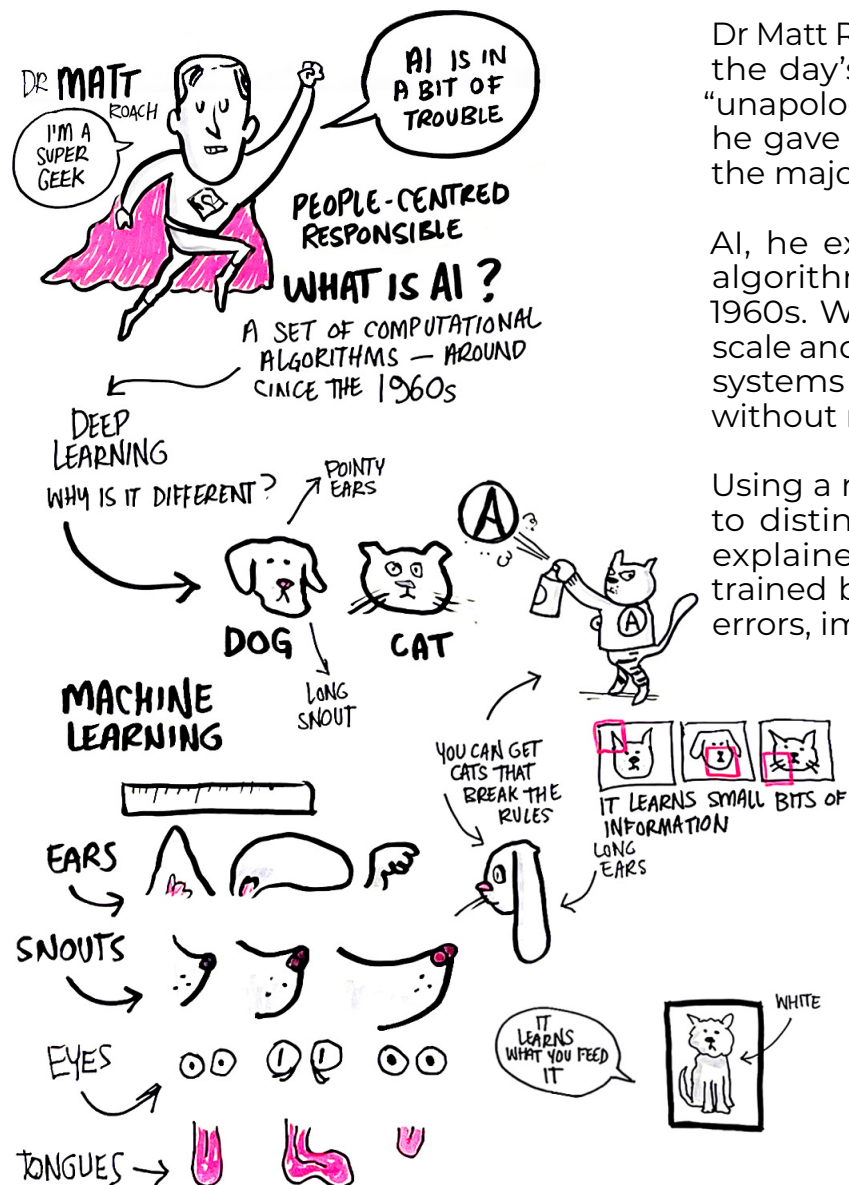 DR MATT
ROACH
I'M A
SUPER
GEEK
AI IS IN
A BIT OF
TROUBLE
PEOPLE-CENTRED
RESPONSIBLE
WHAT IS AI?
A SET OF COMPUTATIONAL
ALGORITHMS — AROUND
CINCE THE 1960s
DEEP
LEARNING
WHY IS IT DIFFERENT?
POINTY
EARS
DOG
CAT
A
A
LONG
SNOUT
MACHINE
LEARNING
YOU CAN GET
CATS THAT
BREAK THE
RULES
IT LEARNS SMALL BITS OF
INFORMATION
LONG
EARS
EARS
SNOUTS
EYES
TONGUES
IT
LEARNS
WHAT YOU FEED
IT
WHITE
Dr Matt
the day's
"unapolo
he gave
the majo
AI, he ex
algorithm
1960s. W
scale and
systems
without
Using a
to distin
explaine
trained b
errors, im